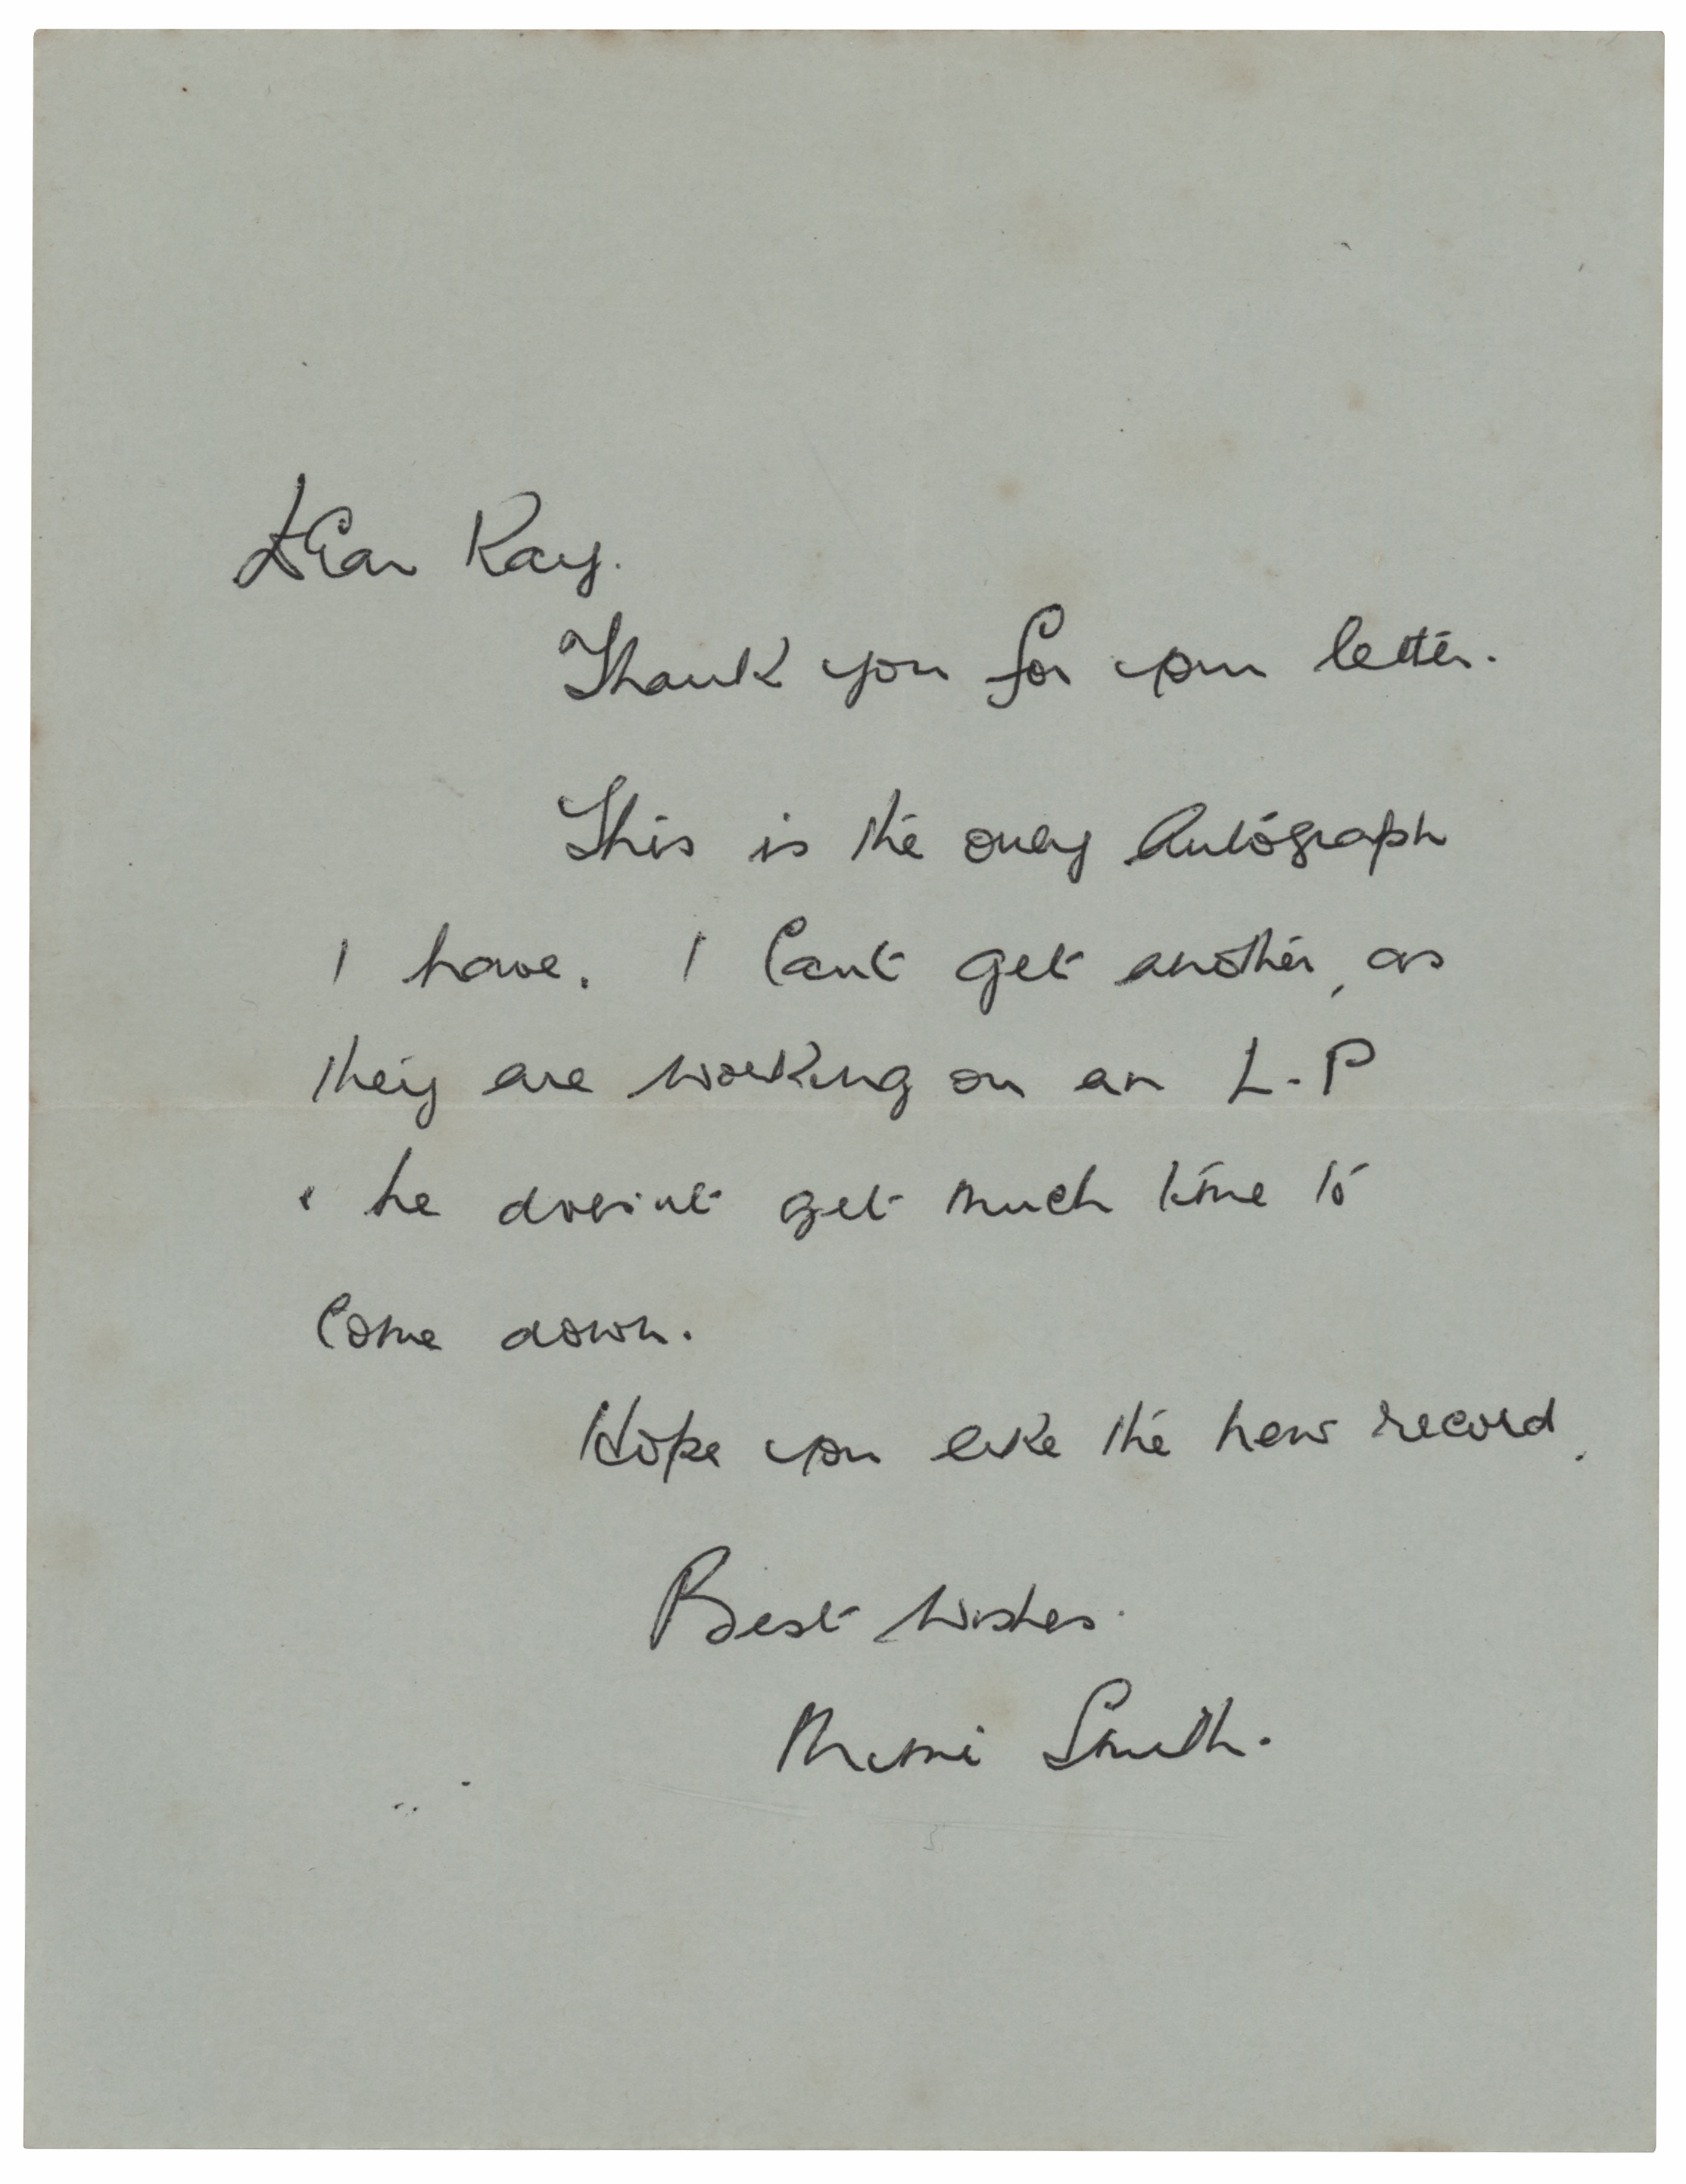 Dear Ray.
Thank you for your letter.
This is the only Autograph
I have. I Cant get another, as
they are working on an L.P
& he doesn't get much time to
Come down.
Hope you like the new record.
Best Wishes.
Mimi Smith.